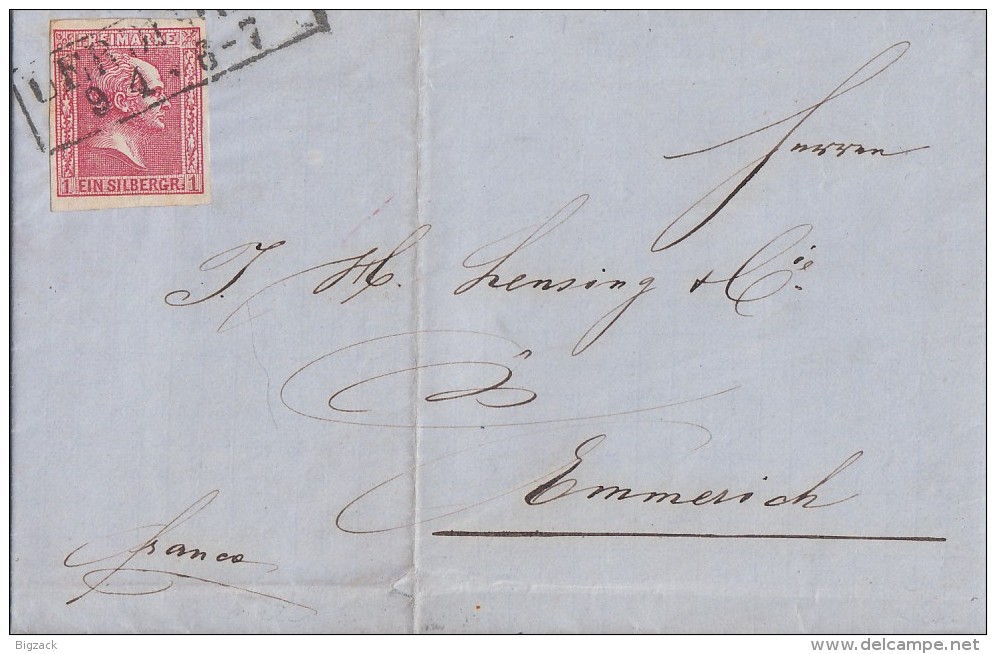 FREIMARKE
9 4 · 6-7
1 EIN SILBERGR. 1
Herren
J. H. Lensing & Cie.
Emmerich
franco
Bigzack
www.delcampe.net